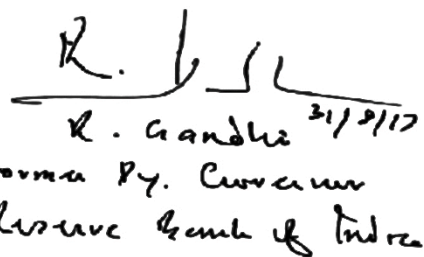 R. Gandhi 31/8/17
ormer Dy. Governor
Reserve Bank of India